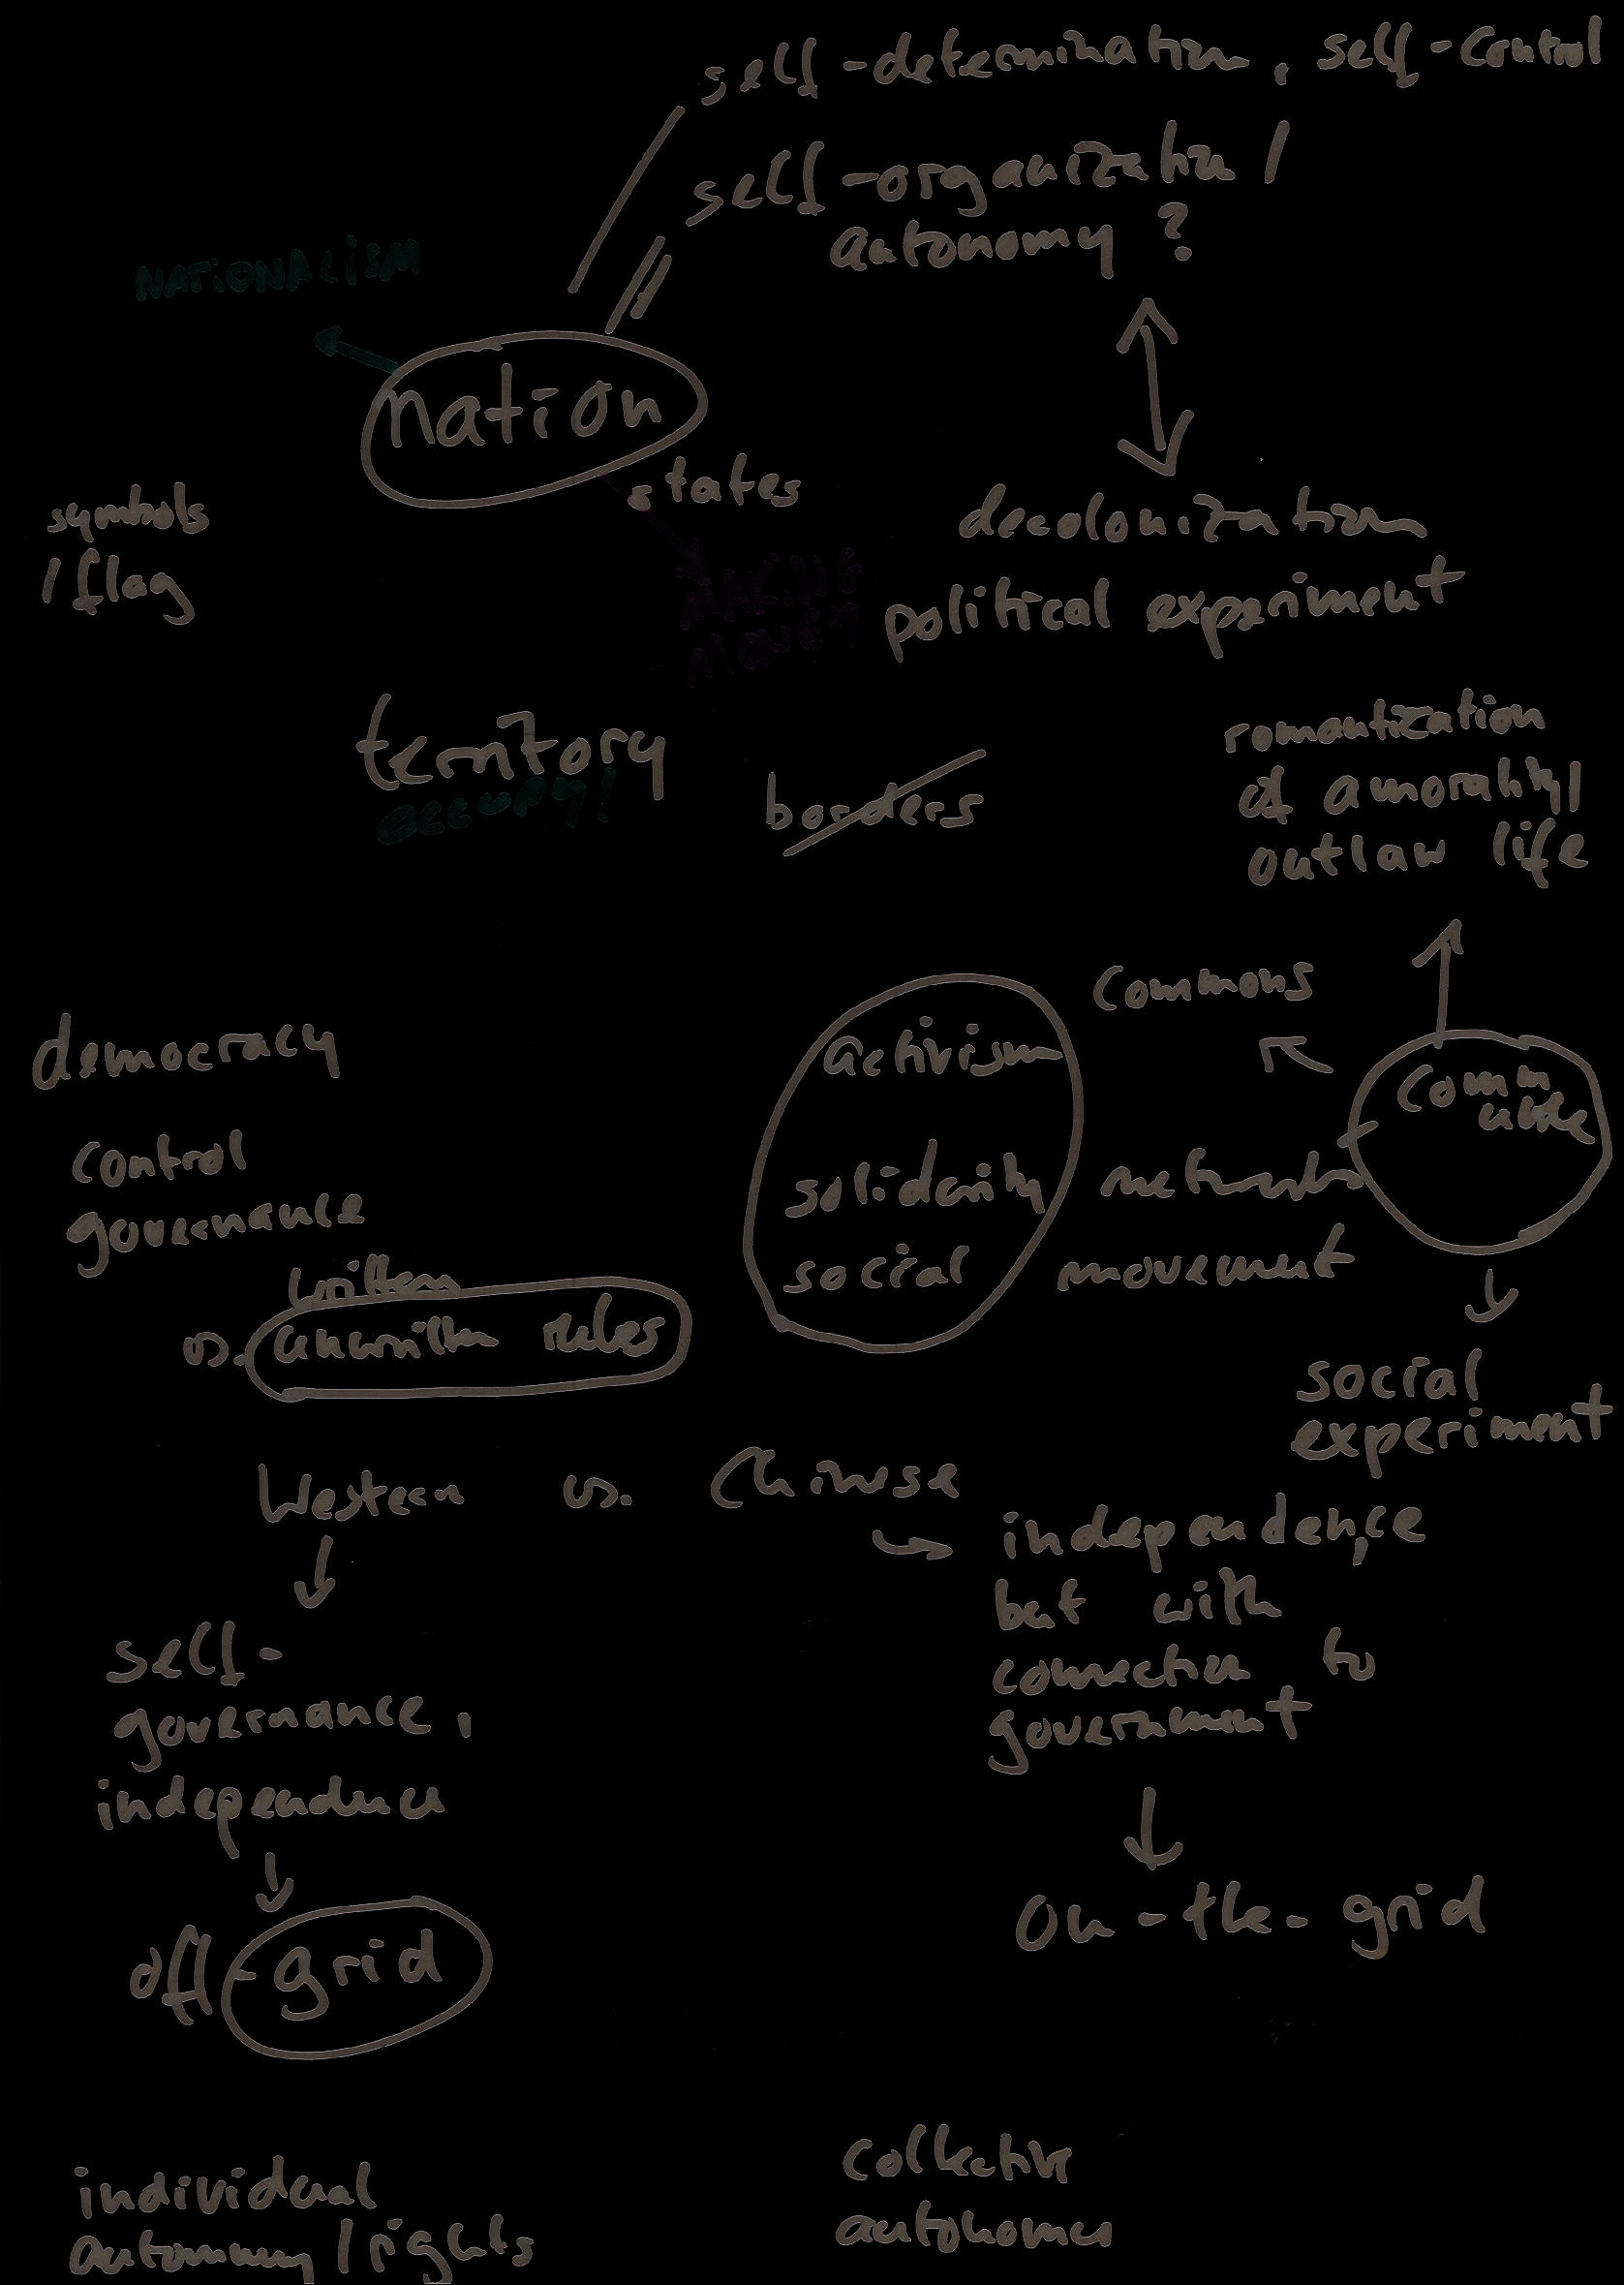 self-determination, self-control
self-organization/
autonomy?
NATIONALISM
nation
states
symbols
/flag
MAKING
MONEY
decolonization
political experiment
territory
OCCUPY!
borders
romantization
of amorality/
outlaw life
commons
activism
commune
democracy
solidarity networks
control
governance
social movement
written
vs. unwritten rules
social
experiment
Western vs. Chinese
independence
but with
connection to
government
self-
governance,
independence
on-the-grid
off-grid
collective
autonomy
individual
autonomy/rights